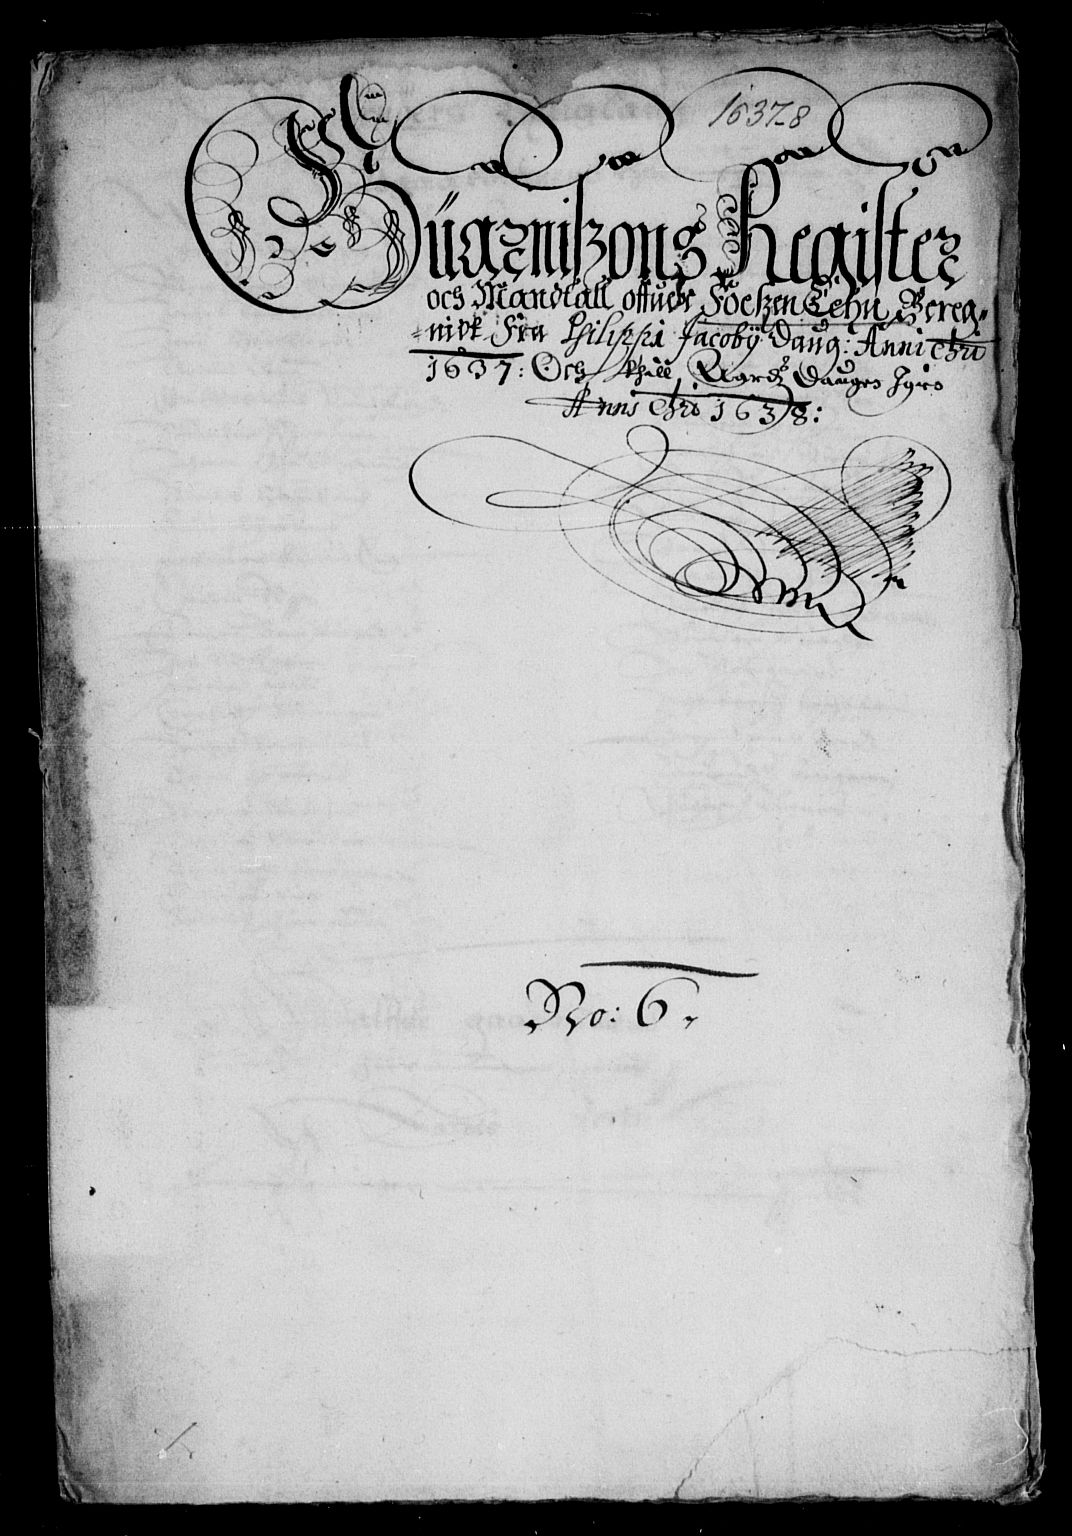 1637-8
Bügznißons Register
och Mandtall offuer Foeszen Lehn Bereg-
nidt Fra Philippi Jacobÿ Daug: Anni Chri
1637: Och thill Aarsz Daugen Igien
Anni Chri 1638:
No: 6.